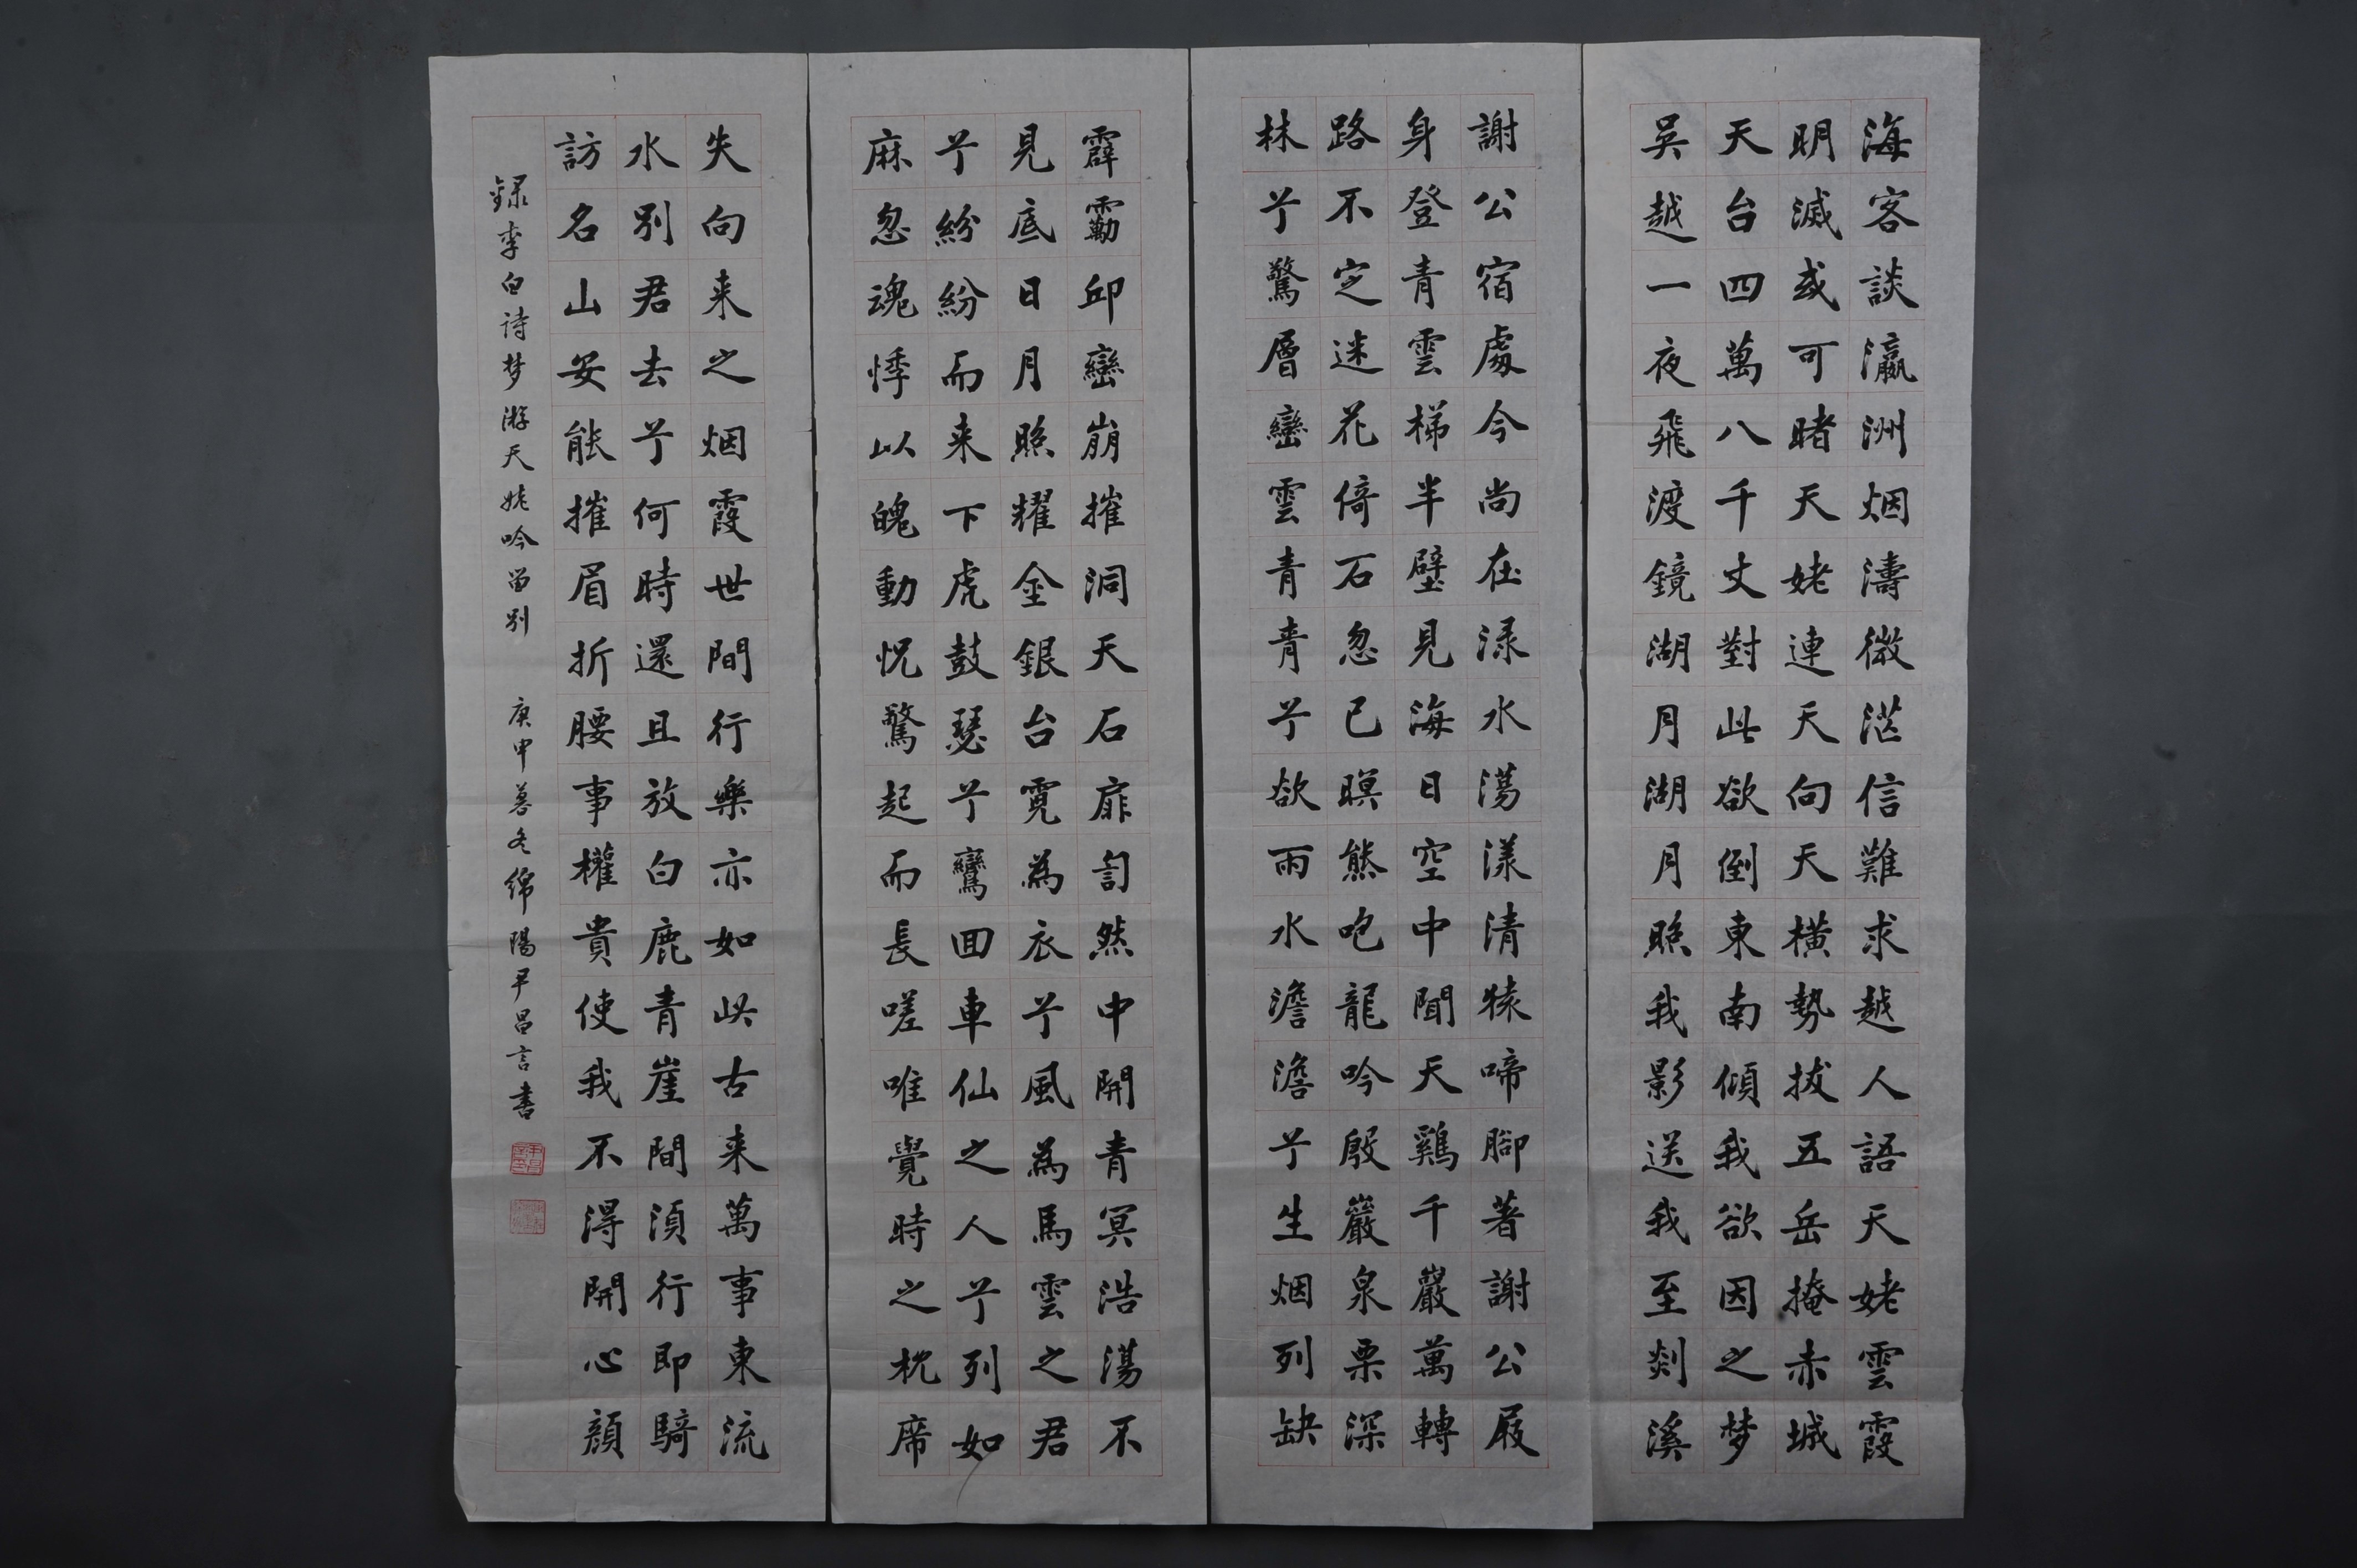 海客談瀛洲烟濤微茫信難求越人語天姥雲霞
明滅或可睹天姥連天向天橫勢拔五岳掩赤城
天台四萬八千丈對此欲倒東南傾我欲因之梦
吳越一夜飛渡鏡湖月湖月照我影送我至剡溪
謝公宿處今尚在渌水蕩漾清猿啼腳著謝公屐
身登青雲梯半壁見海日空中聞天鷄千巖萬轉
路不定迷花倚石忽已暝熊咆龍吟殷巖泉栗深
林兮驚層巒雲青青兮欲雨水澹澹兮生烟列缺
霹靂邱巒崩摧洞天石扉訇然中開青冥浩蕩不
見底日月照耀金銀台霓為衣兮風為馬雲之君
兮紛紛而来下虎鼓瑟兮鸞回車仙之人兮列如
麻忽魂悸以魄動怳驚起而長嗟唯覺時之枕席
失向来之烟霞世間行樂亦如此古来萬事東流
水別君去兮何時還且放白鹿青崖間須行即騎
訪名山安能摧眉折腰事權貴使我不得開心顏
録李白诗梦游天姥吟留别 庚申暮冬綿陽尹昌言書